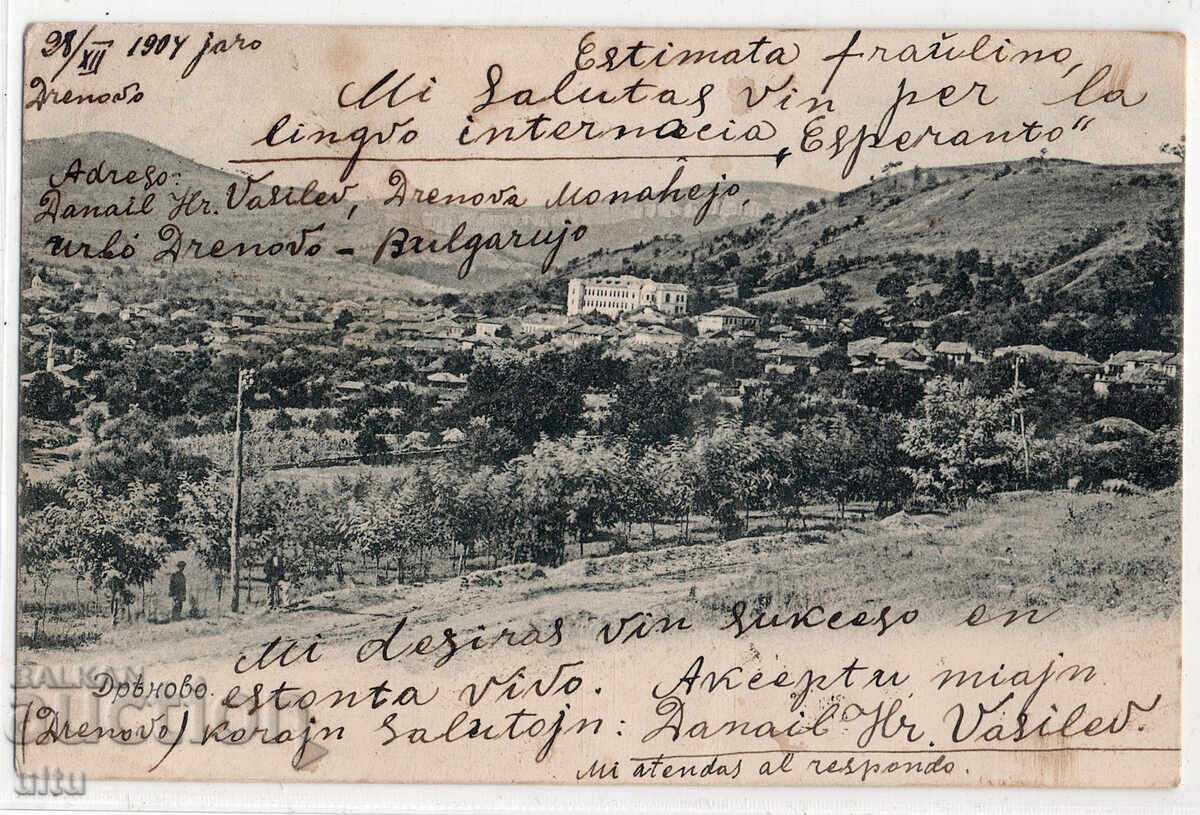 28/XII 1904 jaro
Drenovo
Estimata fraŭlino,
Mi salutas vin per la
lingvo internacia „Esperanto“
Adreso:
Danail Hr. Vasilev, Drenova Monaĥejo,
urbo Drenovo – Bulgarujo
Mi deziras vin sukceso en
estonta vivo. Akceptu miajn
korajn salutojn: Danail Hr. Vasilev.
Mi atendas al respondo.
Дрѣново.
(Drenovo)
BALKAN
auction
ultu